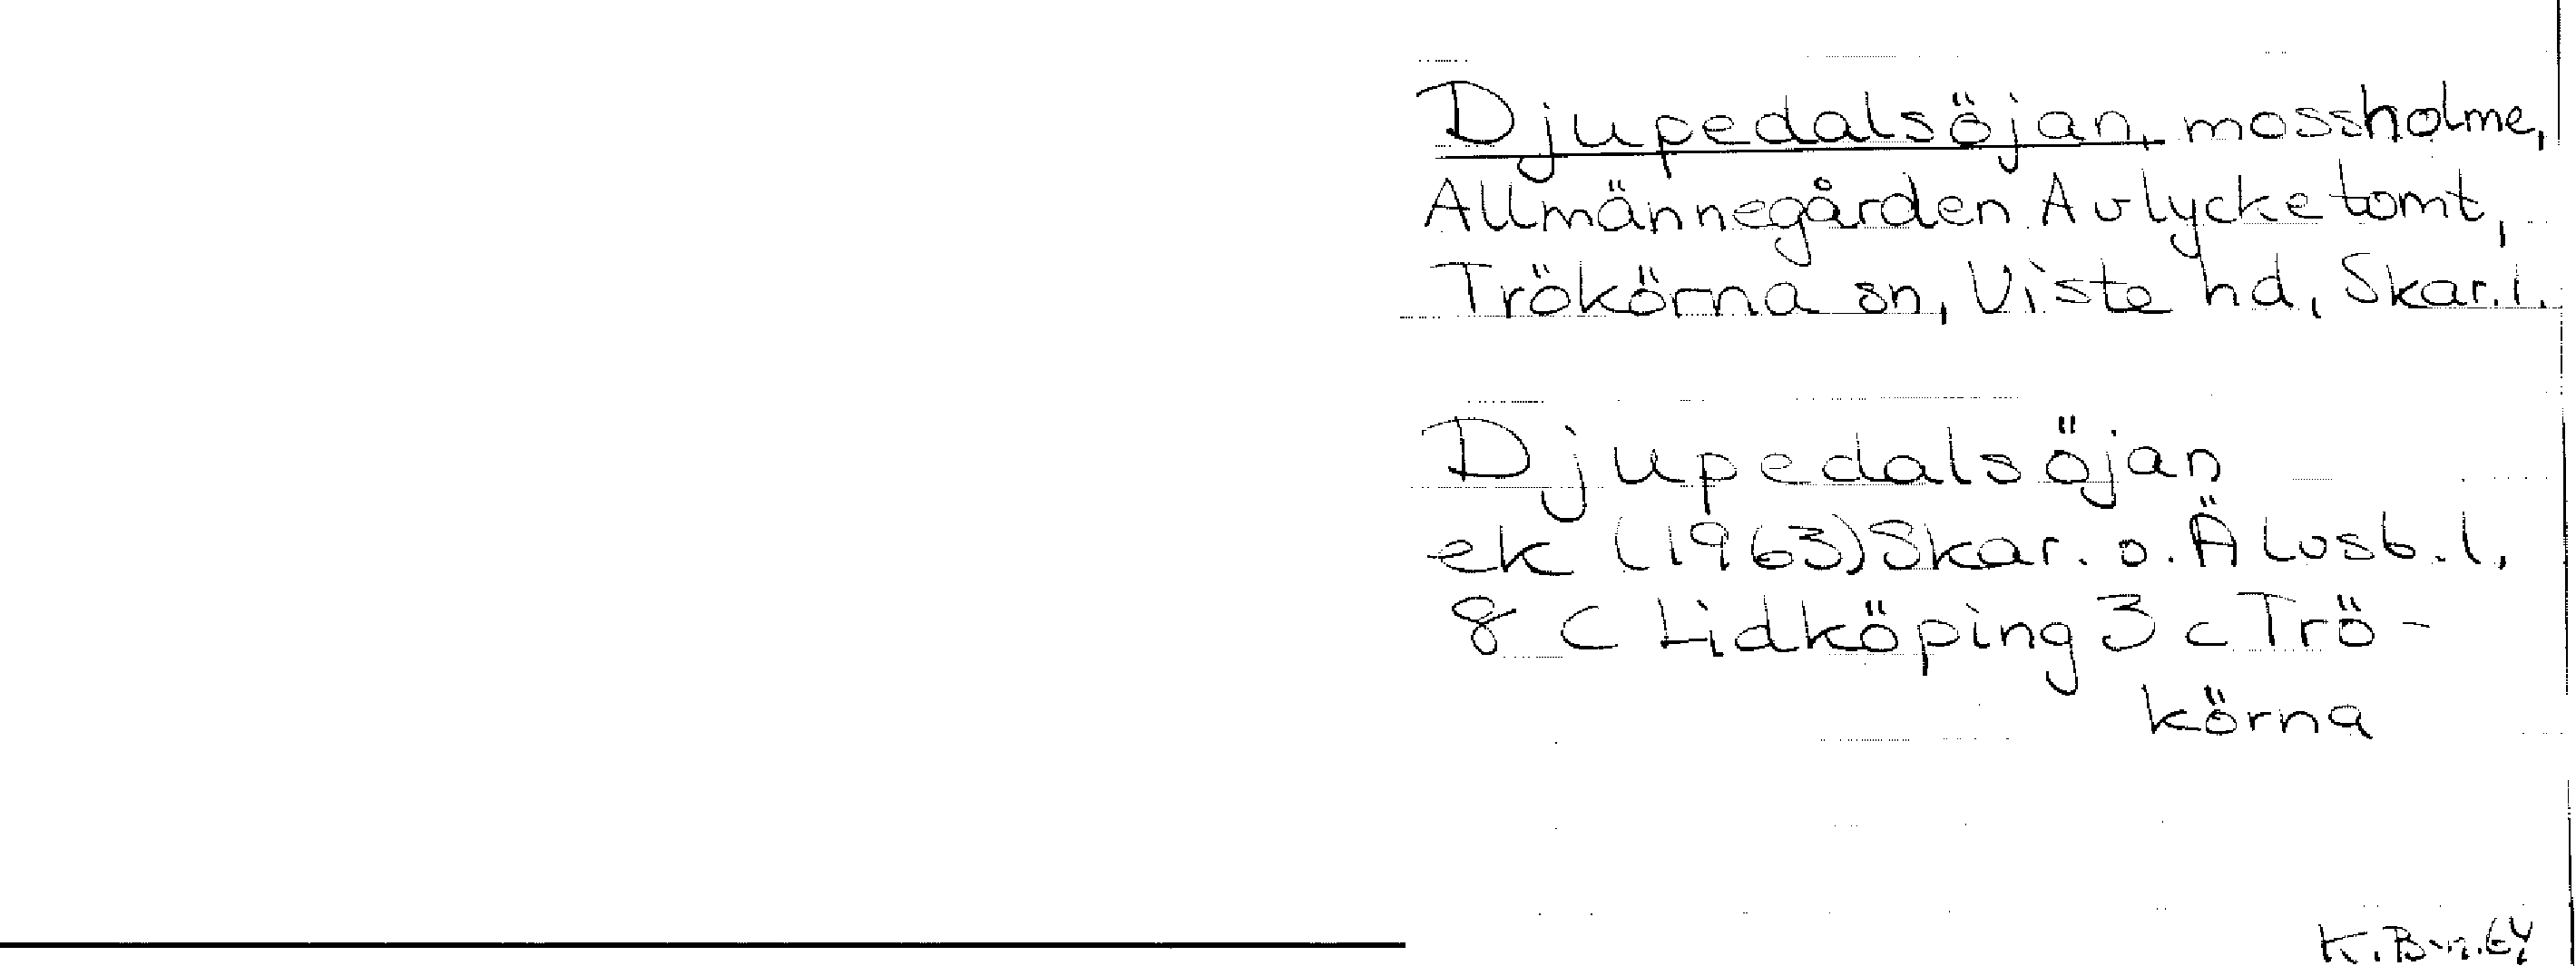 Djupedalsöjan, mossholme,
Allmännegården Avlycketomt,
Trökörna sn, Viste hd, Skar.l.
Djupedalsöjan
ek (1963) Skar. o. Älvsb.l.
8 C Lidköping 3 c Trö-
körna
K.B-n.64